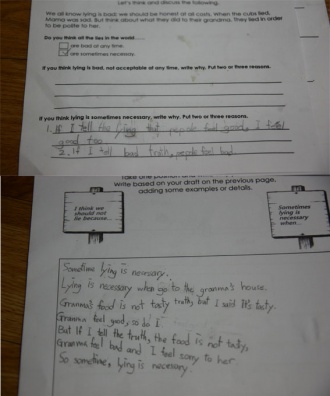 Let's think and discuss the following.
We all know lying is bad; we should be honest at all costs. When the cubs lied,
Mama was sad. But think about what they did to their grandma. They lied in order
to be polite to her.
Do you think all the lies in the world.....
are bad at any time.
are sometimes necessary.
If you think lying is bad, not acceptable at any time, write why. Put two or three reasons.
If you think lying is sometimes necessary, write why. Put two or three reasons.
1. If I tell the lying that people feel good, I feel
good too.
2. If I tell bad truth, people feel bad.
Write based on your draft on the previous page,
adding some examples or details.
I think we
should not
lie because...
Sometimes
lying is
necessary
when...
Sometime lying is necessary.
Lying is necessary when go to the granma's house.
Granma's food is not tasty truth, but I said It's tasty.
Granma feel good, so do I
But If I tell the truth, the food is not tasty,
Granma feel bad and I feel sorry to her.
So sometime, lying is necessary